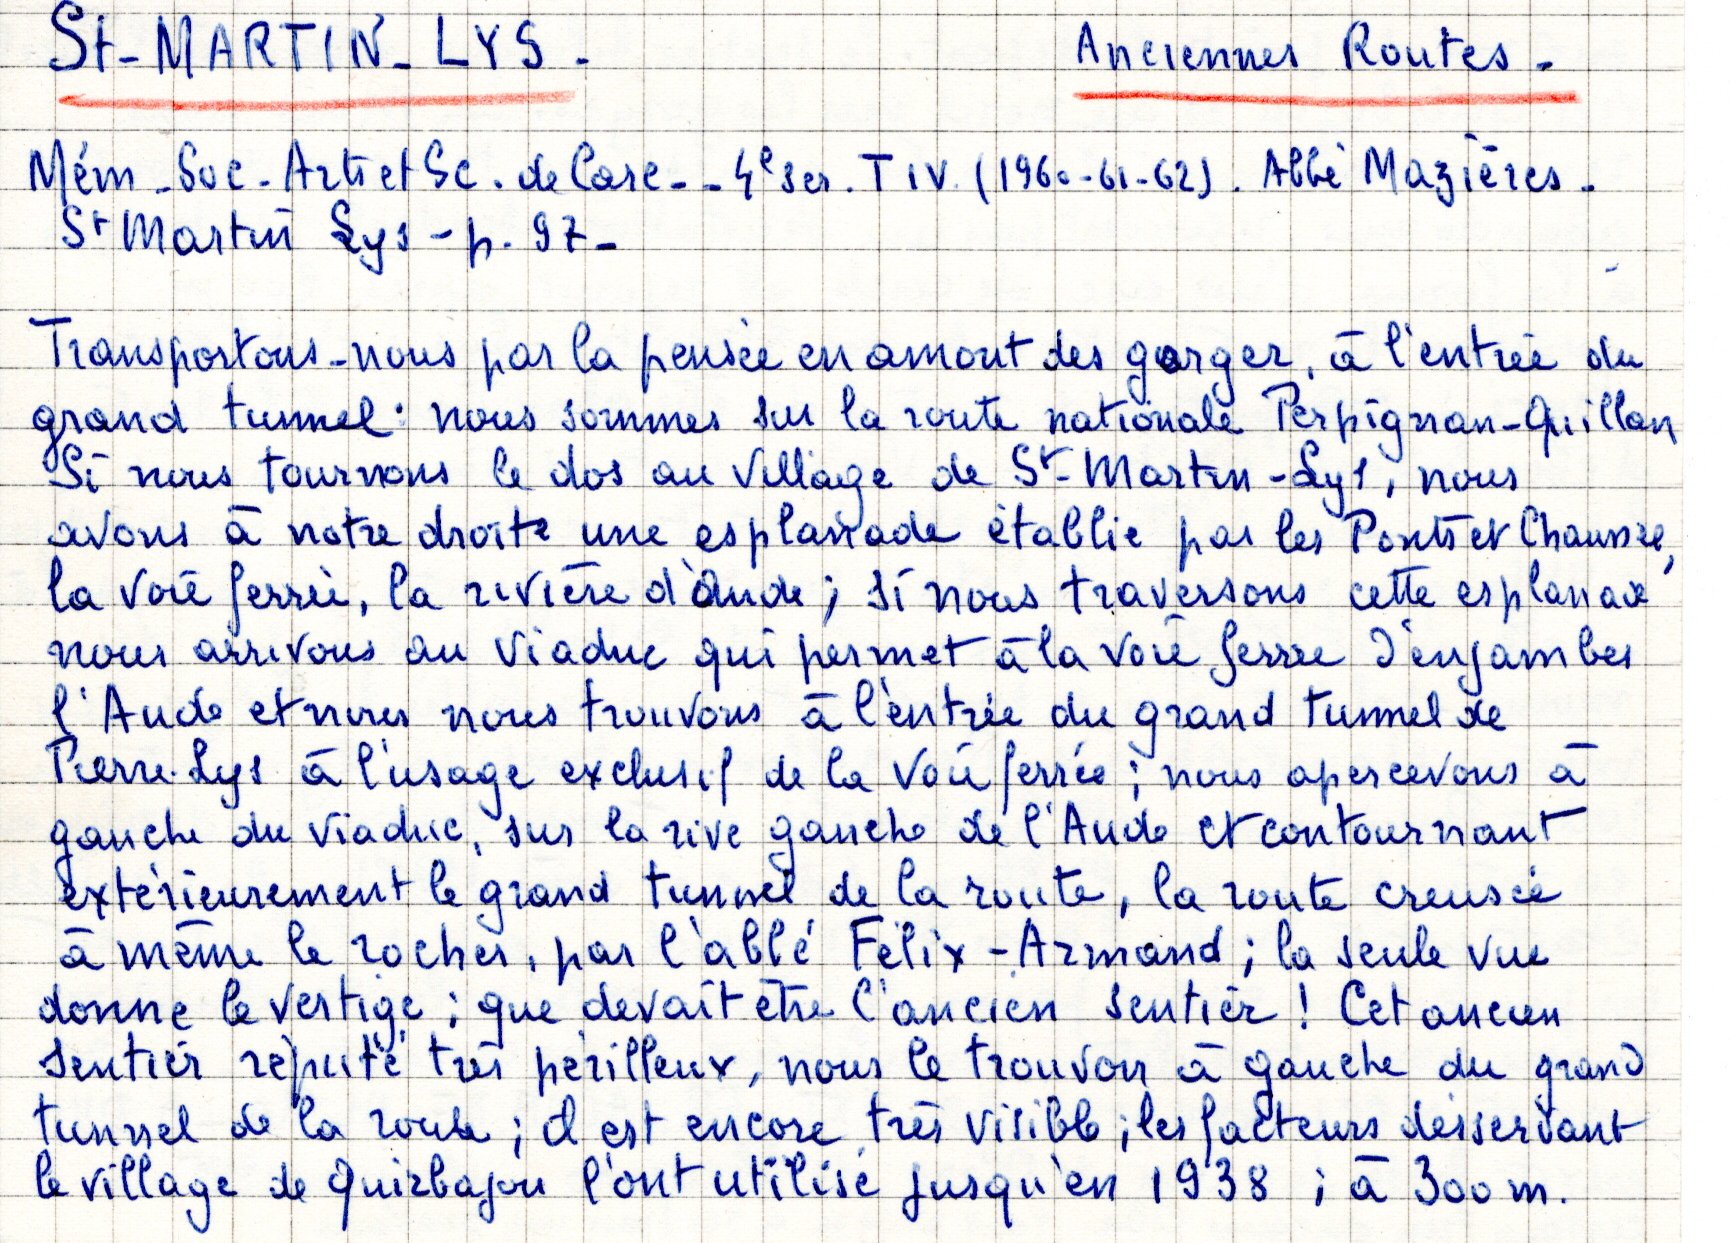 St-MARTIN-LYS. Anciennes Routes.
Mém. Soc. Arts et Sc. de Carc.. 4e ser. T IV. (1960-61-62). Abbé Mazières.
St Martin Lys - p. 97-
Transportons-nous par la pensée en amont des gorges, à l'entrée du
grand tunnel: nous sommes sur la route nationale Perpignan-Quillan
Si nous tournons le dos au village de St-Martin-Lys, nous
avons à notre droite une esplanade établie par les Ponts et Chaussée,
la voie ferrée, la rivière d'Aude; si nous traversons cette esplanade
nous arrivons au viaduc qui permet à la voie ferrée d'enjamber
l'Aude et nous nous trouvons à l'entrée du grand tunnel de
Pierre-Lys à l'usage exclusif de la voie ferrée; nous apercevons à
gauche du viaduc, sur la rive gauche de l'Aude et contournant
extérieurement le grand tunnel de la route, la route creusée
à même le rocher, par l'abbé Félix-Armand; la seule vue
donne le vertige; que devait être l'ancien sentier! Cet ancien
sentier réputé très périlleux, nous le trouvon à gauche du grand
tunnel de la route; il est encore très visible; les facteurs desservant
le village de Quirbajou l'ont utilisé jusqu'en 1938; à 300 m.